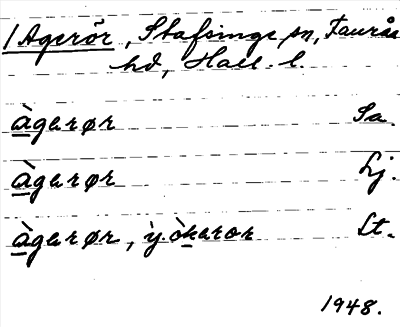 1 Agerör, Stafsinge sn, Faurås
hd, Hall. l.
àgarør Sa.
àgarør Lj.
àgarør, ỳ. òkaror St.
1948.